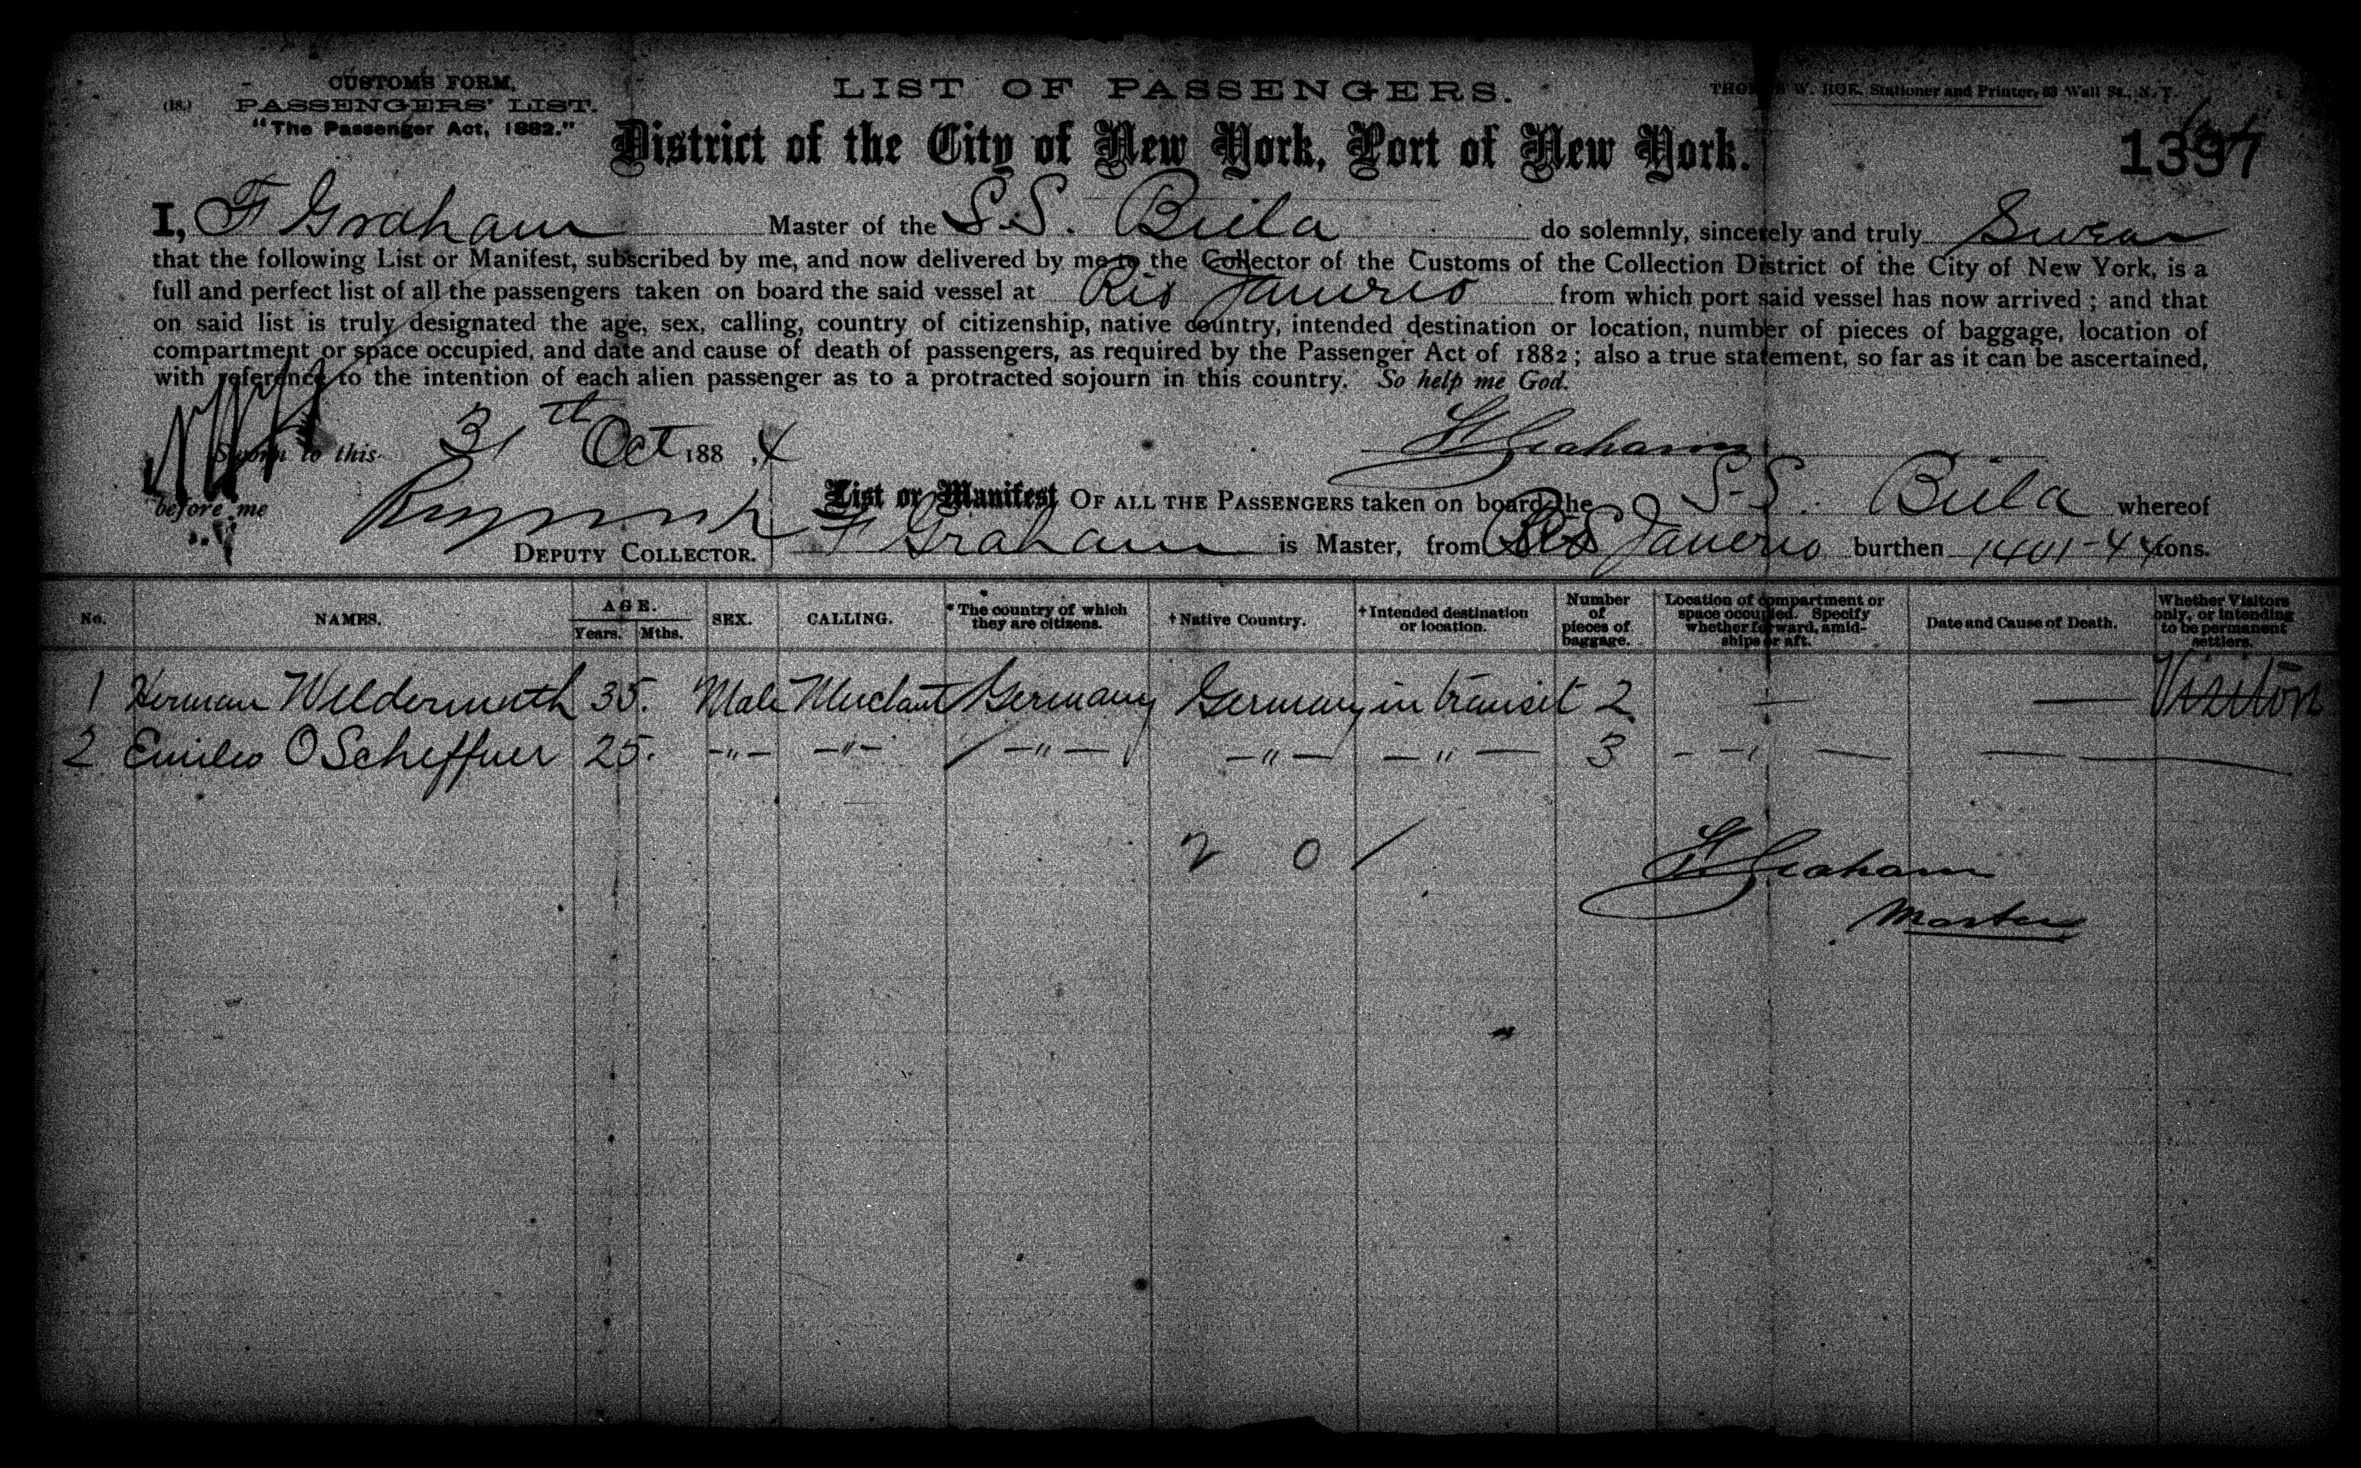 CUSTOMS FORM.
(18.) PASSENGERS' LIST.
"The Passenger Act, 1882."
LIST OF PASSENGERS.
THOMAS W. ROE, Stationer and Printer, 63 Wall St., N.Y.
District of the City of New York, Port of New York.
1397
I, F Graham Master of the S.S. Biela do solemnly, sincerely and truly Swear
that the following List or Manifest, subscribed by me, and now delivered by me to the Collector of the Customs of the Collection District of the City of New York, is a
full and perfect list of all the passengers taken on board the said vessel at Rio Janerio from which port said vessel has now arrived; and that
on said list is truly designated the age, sex, calling, country of citizenship, native country, intended destination or location, number of pieces of baggage, location of
compartment or space occupied, and date and cause of death of passengers, as required by the Passenger Act of 1882; also a true statement, so far as it can be ascertained,
with reference to the intention of each alien passenger as to a protracted sojourn in this country. So help me God.
Sworn to this 31th Oct 1884 F Graham
before me
DEPUTY COLLECTOR.
List or Manifest OF ALL THE PASSENGERS taken on board the S.S. Biela whereof
F Graham is Master, from Rio Janerio burthen tons.
No. NAMES. AGE. Years. Mths. SEX. CALLING. *The country of which they are citizens. †Native Country. †Intended destination or location. Number of pieces of baggage. Location of compartment or space occupied. Specify whether forward, amidships or aft. Date and Cause of Death. Whether Visitors only, or intending to be permanent settlers.
1 Herman Wildermuth 35. Male Merchant Germany Germany in transit 2 — — Visitor
2 Emileo O Scheffner 25. -"- -"- -"- -"- -"- 3 - -" — — —
2 0 /
F Graham
Master